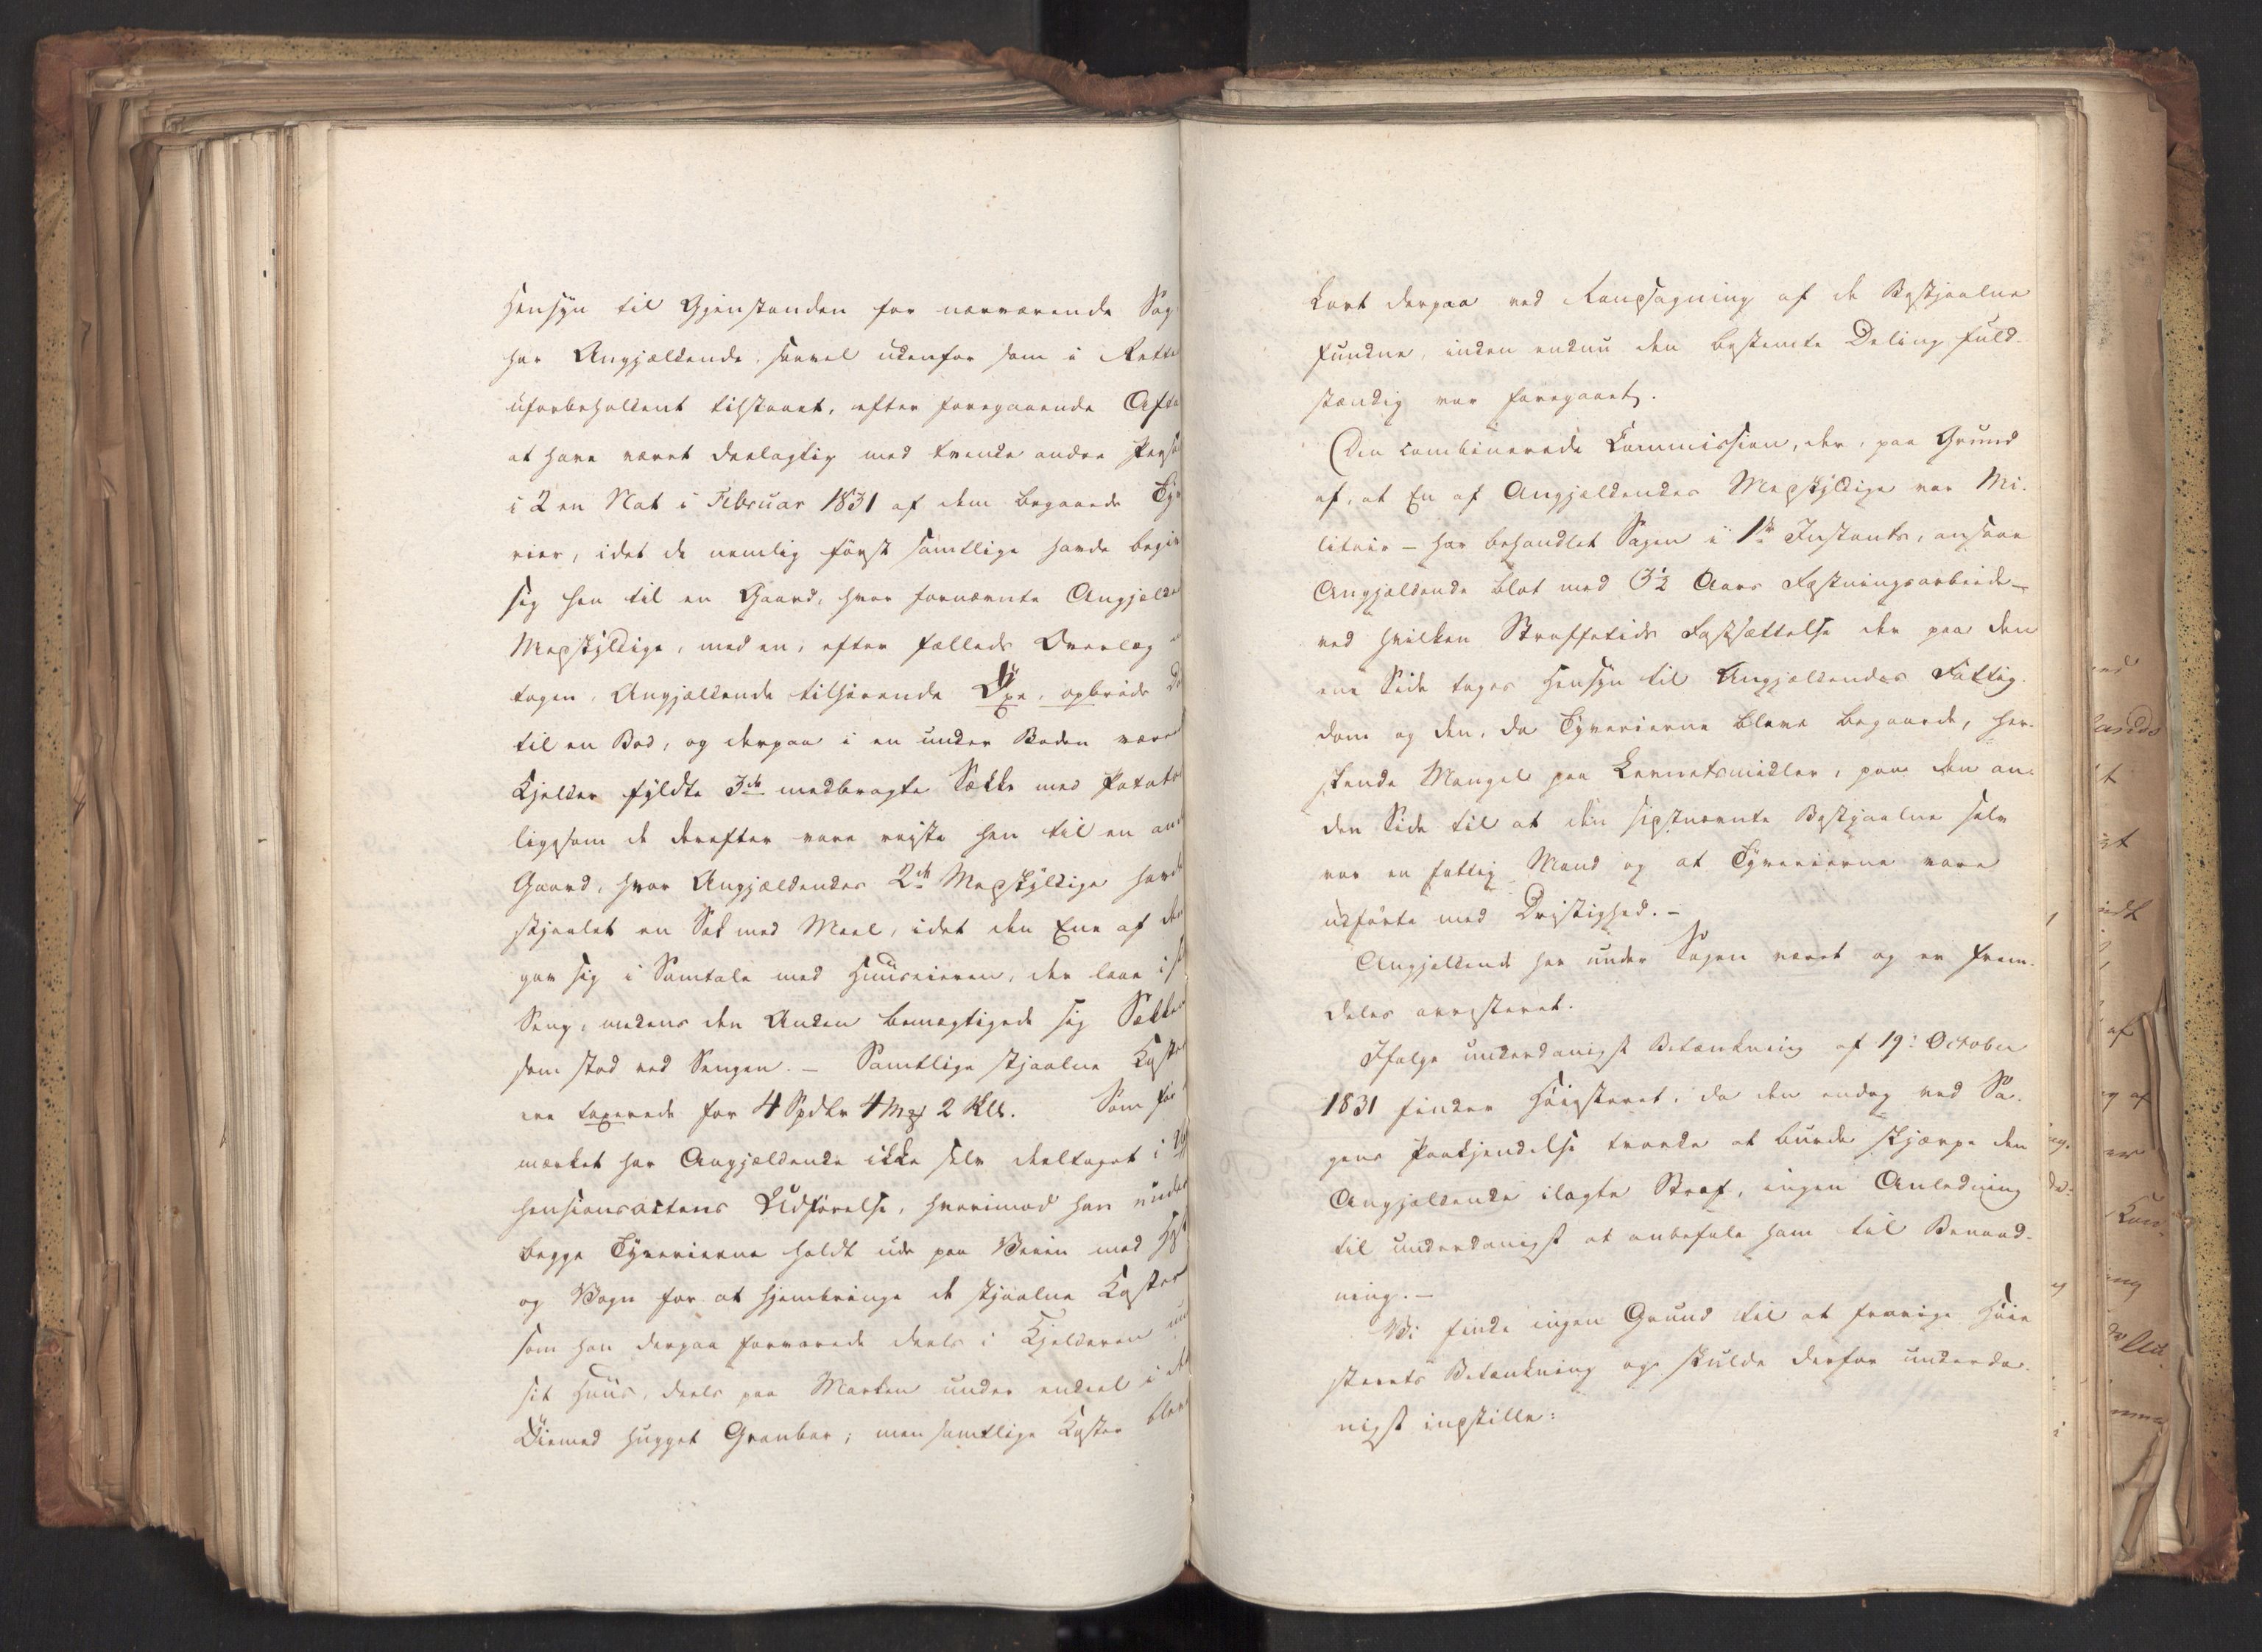 Hensyn til Gjenstanden for nærværende Sag
har Angjældende, saavel udenfor som i Rette
uforbeholdent tilstaaet, efter foregaaende Afta
at have været deelagtig med tvende andre Perso
i 2 en Nat i Februar 1831 af dem begaaede Tyve
rier, idet de nemlig først samtlige havde begiv
sig hen til en Gaard, hvor fornævnte Angjælde
Medskyldige, med en, efter fælleds Overlæg
tagen, Angjældende tilhørende Øxe, opbrøde Dø
til en Bod, og derpaa i en under Boden være
Kjelder fyldte 3de medbragte Sække med Potate
ligesom de derefter vare reiste hen til en and
Gaard, hvor Angjældendes 2de Medskyldige havd
stjaalet en Sæk med Meel, idet den Ene af dem
gav sig i Samtale med Huuseieren, der laae i si
Seng, medens den Anden bemægtigede sig Sækken
som stod ved Sengen. – Samtlige stjaalne Koster
ere taxerede for 4 Spdlr 4 Mrk 2 skl. Som før
mærket har Angjældende ikke selv deeltaget i
hensionsactens Udførelse, hvorimod han under
begge Tyverierne holdt ude paa Veien med Hest
og Vogn for at hjembringe de stjaalne Koster
som han derpaa forvarede deels i Kjelderen un
sit Huus, deels paa Marken under endeel i det
Øiemed hugget Granbar; men samtlige Koster bleve
kort derpaa ved Ransagning af de Bestjaalne
fundne, inden endnu den bestemte Deling fuld-
stændig var foregaaet.
Den combinerede Commission, der, paa Grund
af, at En af Angjældendes Medskyldige var Mi-
litair – har behandlet Sagen i 1ste Instants, ansaae
Angjældende blot med 3½ Aars Fæstningsarbeide –
ved hvilken Straffetids Fastsættelse der paa den
ene Side toges Hensyn til Angjældendes Fattig-
dom og den, da Tyverierne bleve begaaede, her-
skende Mangel paa Levnetsmidler, paa den an-
den Side til at den sidstnævnte Bestjaalne selv
var en fattig Mand og at Tyverierne vare
udførte med Dristighed. –
Angjældende har under Sagen været og er frem-
deles arresteret.
Ifølge underdanigst Betænkning af 19: October
1831 finder Høiesteret, da den endog ved Sa-
gens Paakjendelse troede at burde skjærpe den
Angjældende ilagte Straf, ingen Anledning
til underdanigst at anbefale ham til Benaad-
ning. –
Vi finde ingen Grund til at fravige Høie
sterets Betænkning og skulde derfor underda-
nigst indstille: